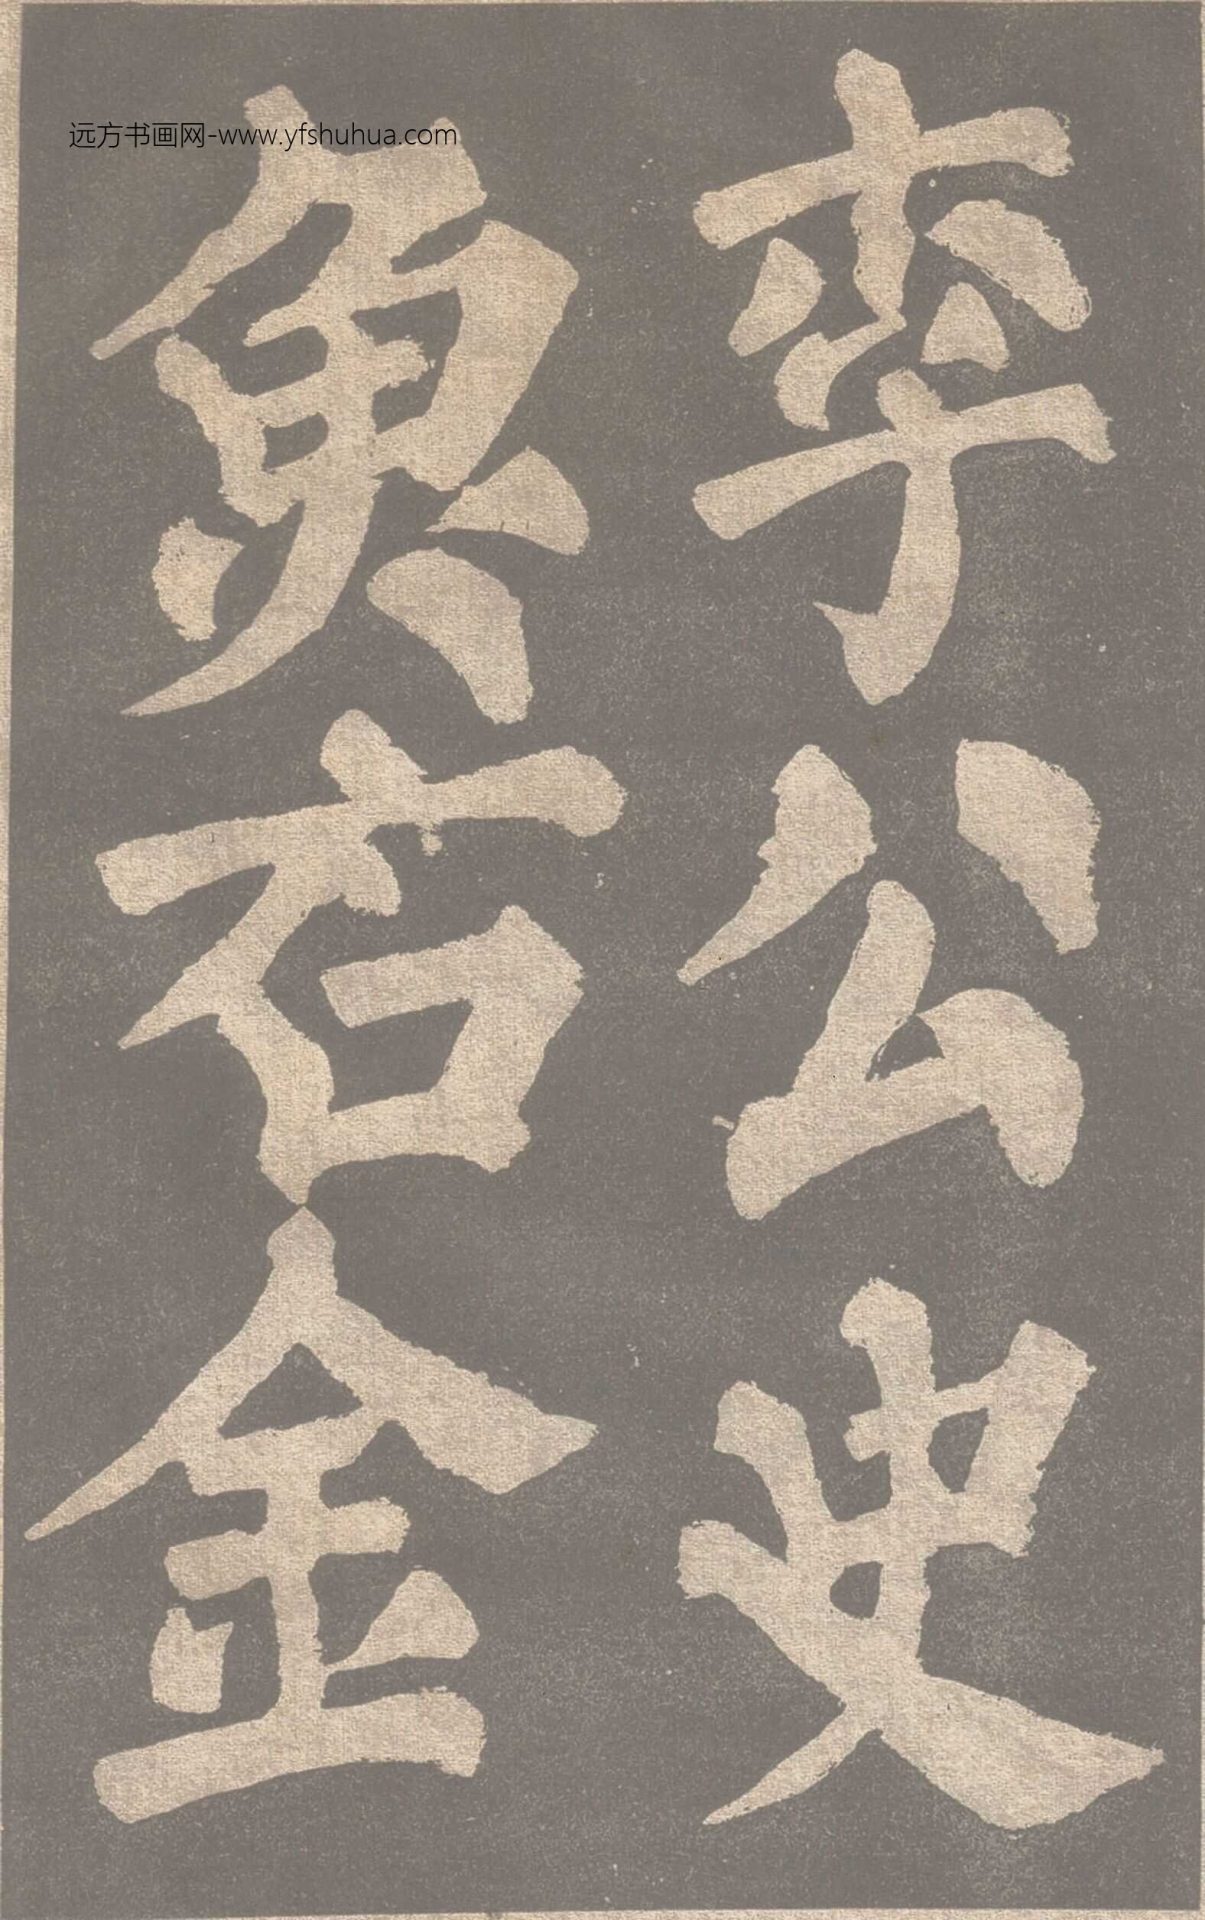 远方书画网-www.yfshuhua.com
李公史
魚右金